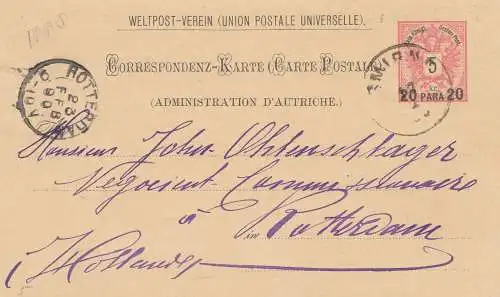 WELTPOST-VEREIN (UNION POSTALE UNIVERSELLE).
CORRESPONDENZ-KARTE (CARTE POSTALE)
(ADMINISTRATION D'AUTRICHE).
5
20 PARA 20
ROTTERDAM
23
FEB
90
Monsieur John Ohlenschlager
Negocient-Commissionaire
à Rotterdam
Hollande